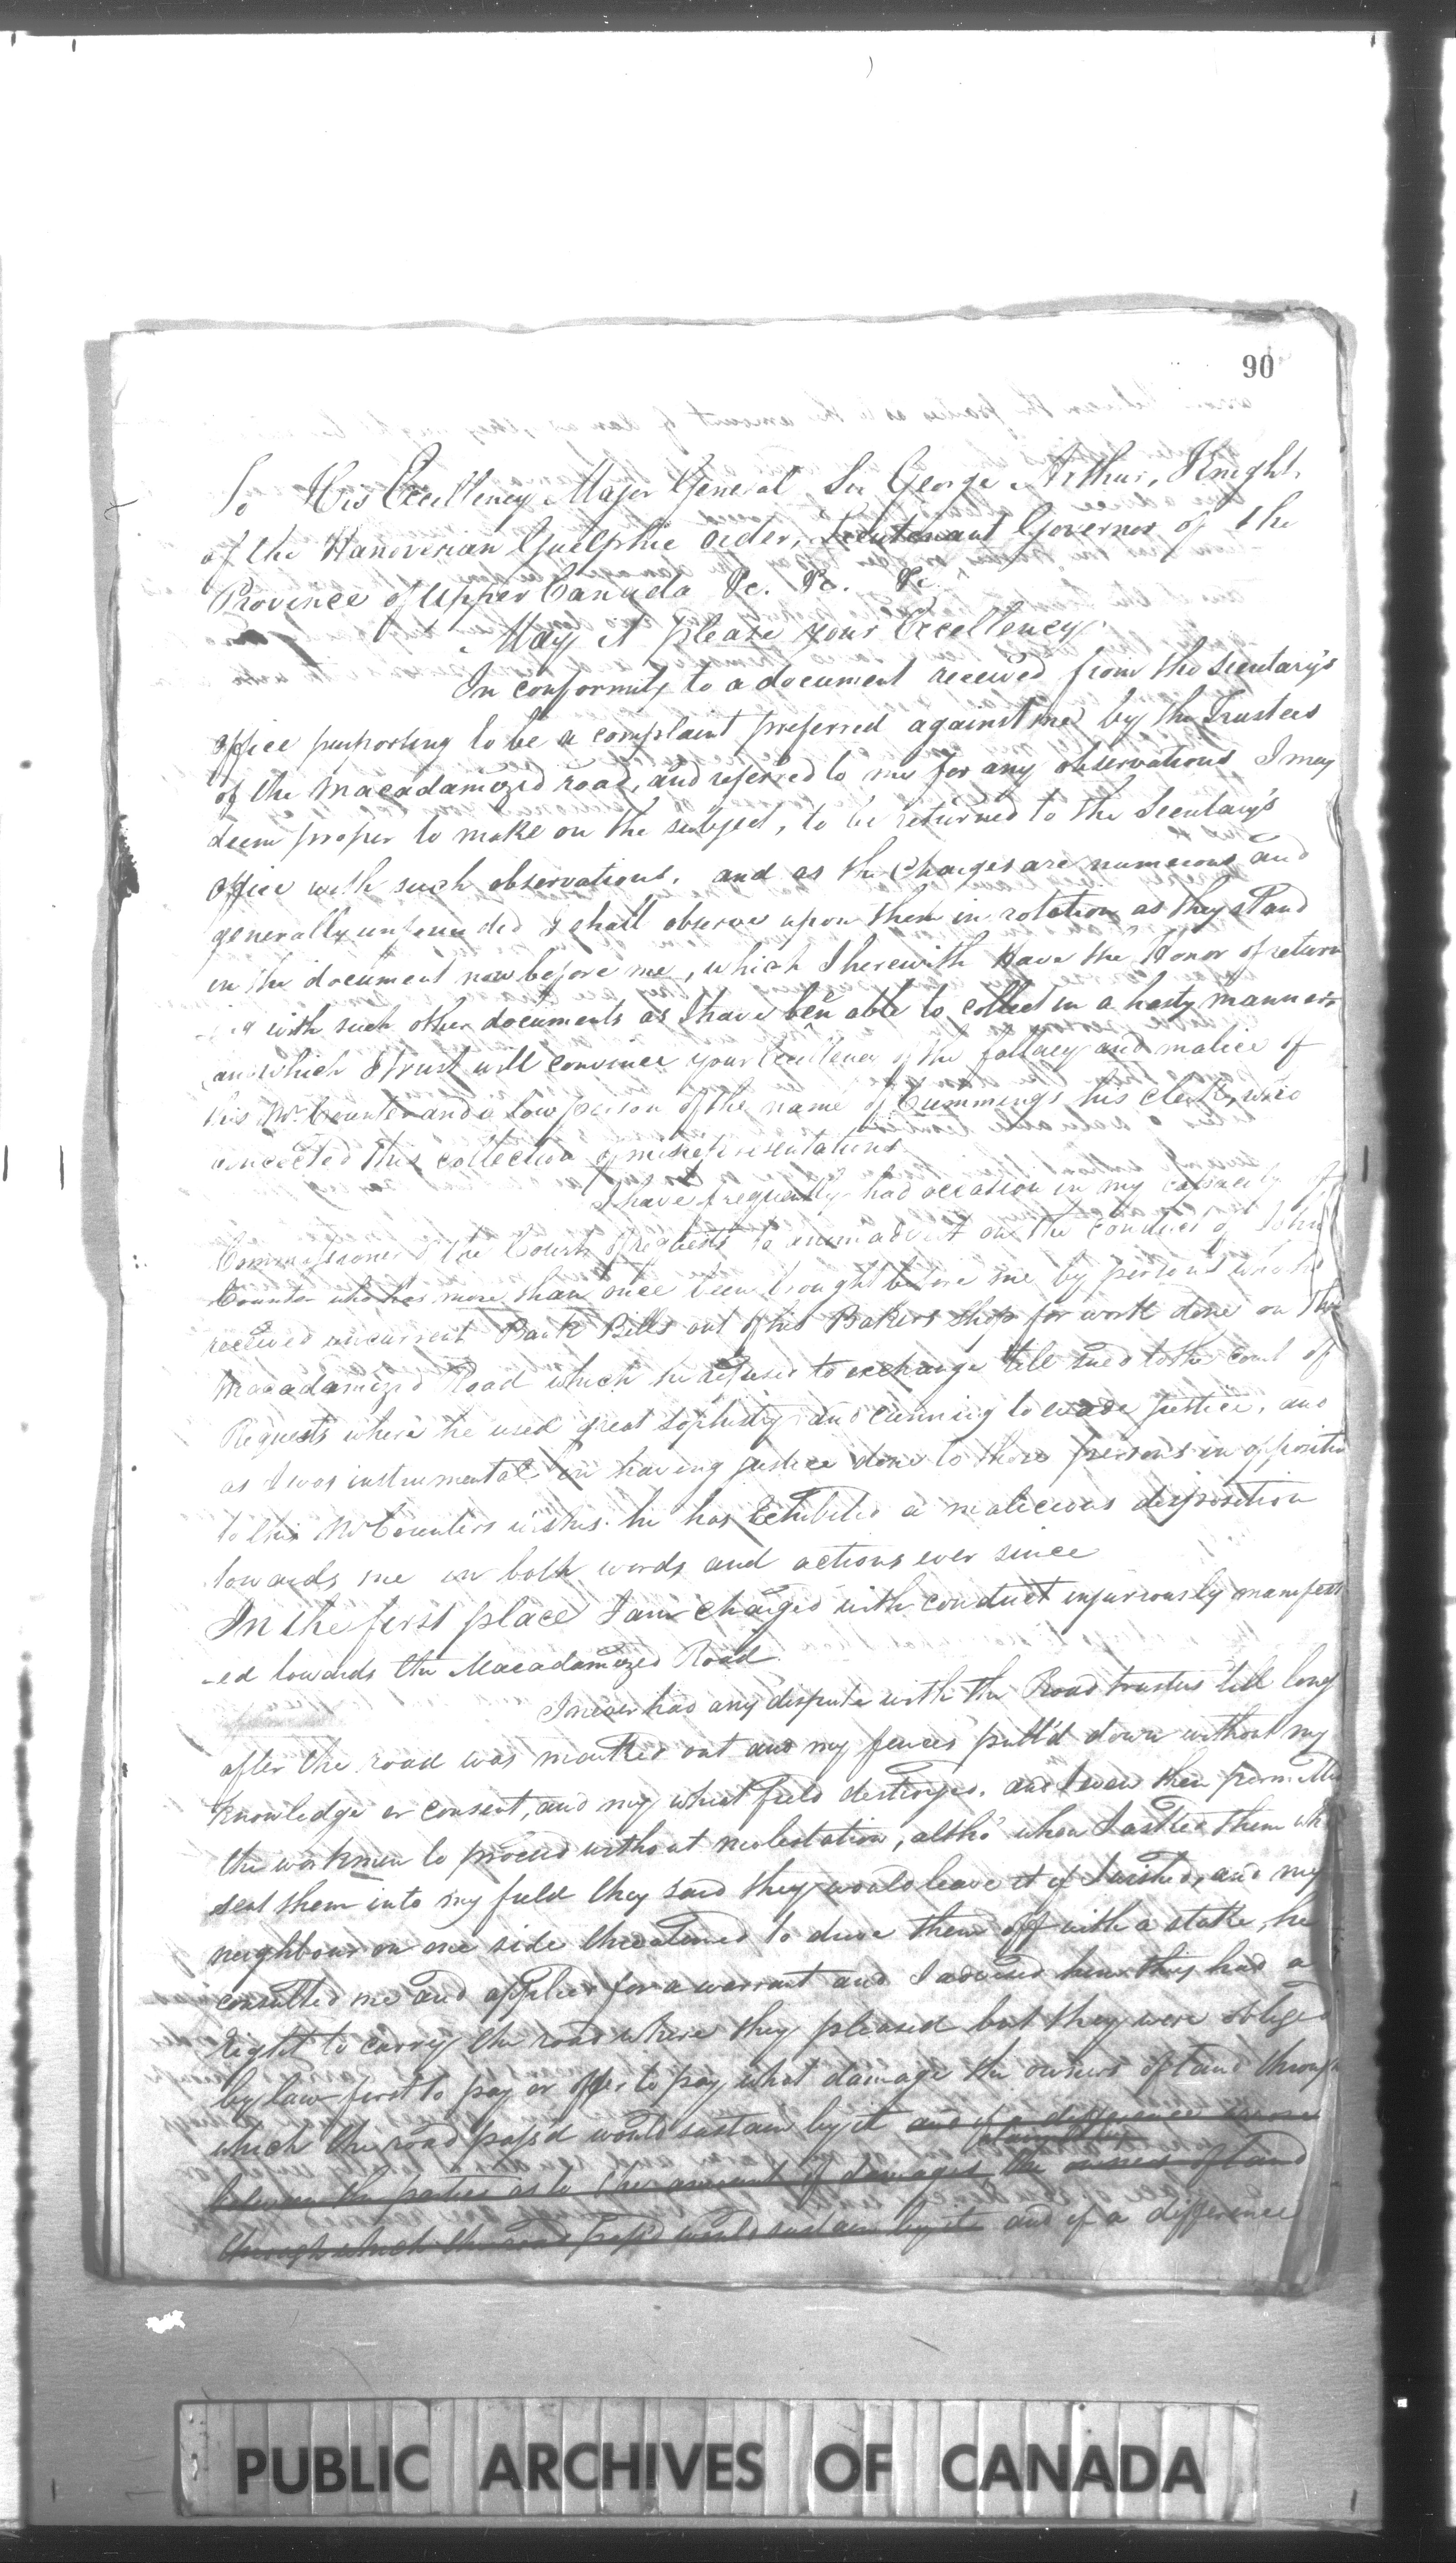 90
To His Excellency Major General Sir George Arthur, Knight
of the Hanoverian Guelphic order, Lieutenant Governor of the
Province of Upper Canada &c. &c. &c.
May it please your Excellency
In conformity to a document received from the Secretary's
office purporting to be a complaint preferred against me by the Trustees
of the Macadamized road, and referred to me for any observations I may
deem proper to make on the subject, to be returned to the Secretary's
office with such observations, and as the Charges are numerous and
generally unfounded I shall observe upon them in rotation as they stand
in the document now before me, which I herewith Have the Honor of return
ing with such other documents as I have been able to collect in a hasty manner
and which I trust will convince your Excellency of the fallacy and malice of
this Mr. Counter and a low person of the name of Cummings his clerk, who
concocted this collection of misrepresentations.
I have frequently had occasion in my capacity of
Commissioner of the Court of requests to animadvert on the conduct of John
Counter who has more than once been brought before me by persons who had
received uncurrent Bank Bills out of his Bakers Shop for work done on the
Macadamized Road which he refused to exchange till sued to the court of
Requests where he used great sophistry and cunning to evade justice, and
as I was instrumental in having justice done to those persons in oppositio
to this Mr Counters wishes he has Exhibited a malicious disposition
towards me in both words and actions ever since
In the first place I am charged with conduct injuriously manifest
-ed towards the Macadamized Road.
I never had any dispute with the Road trustees till long
after the road was marked out and my fences pull'd down without my
knowledge or consent, and my wheat field destroyed, and I even then permitted
the workmen to proceed without molestation, altho' when I asked them who
sent them into my field they said they would leave it if I wished, and my
neighbour on one side threatened to drive them off with a stake, he
consulted me and applied for a warrant and I advised him they had a
right to carry the road where they pleased but they were obliged
by law first to pay or offer to pay what damage the owners of land through
which the road pass'd would sustain by it and if a difference arose
between the parties as to the amount of damages the owners of land
through which the road pass'd would sustain by it and if a difference
PUBLIC ARCHIVES OF CANADA